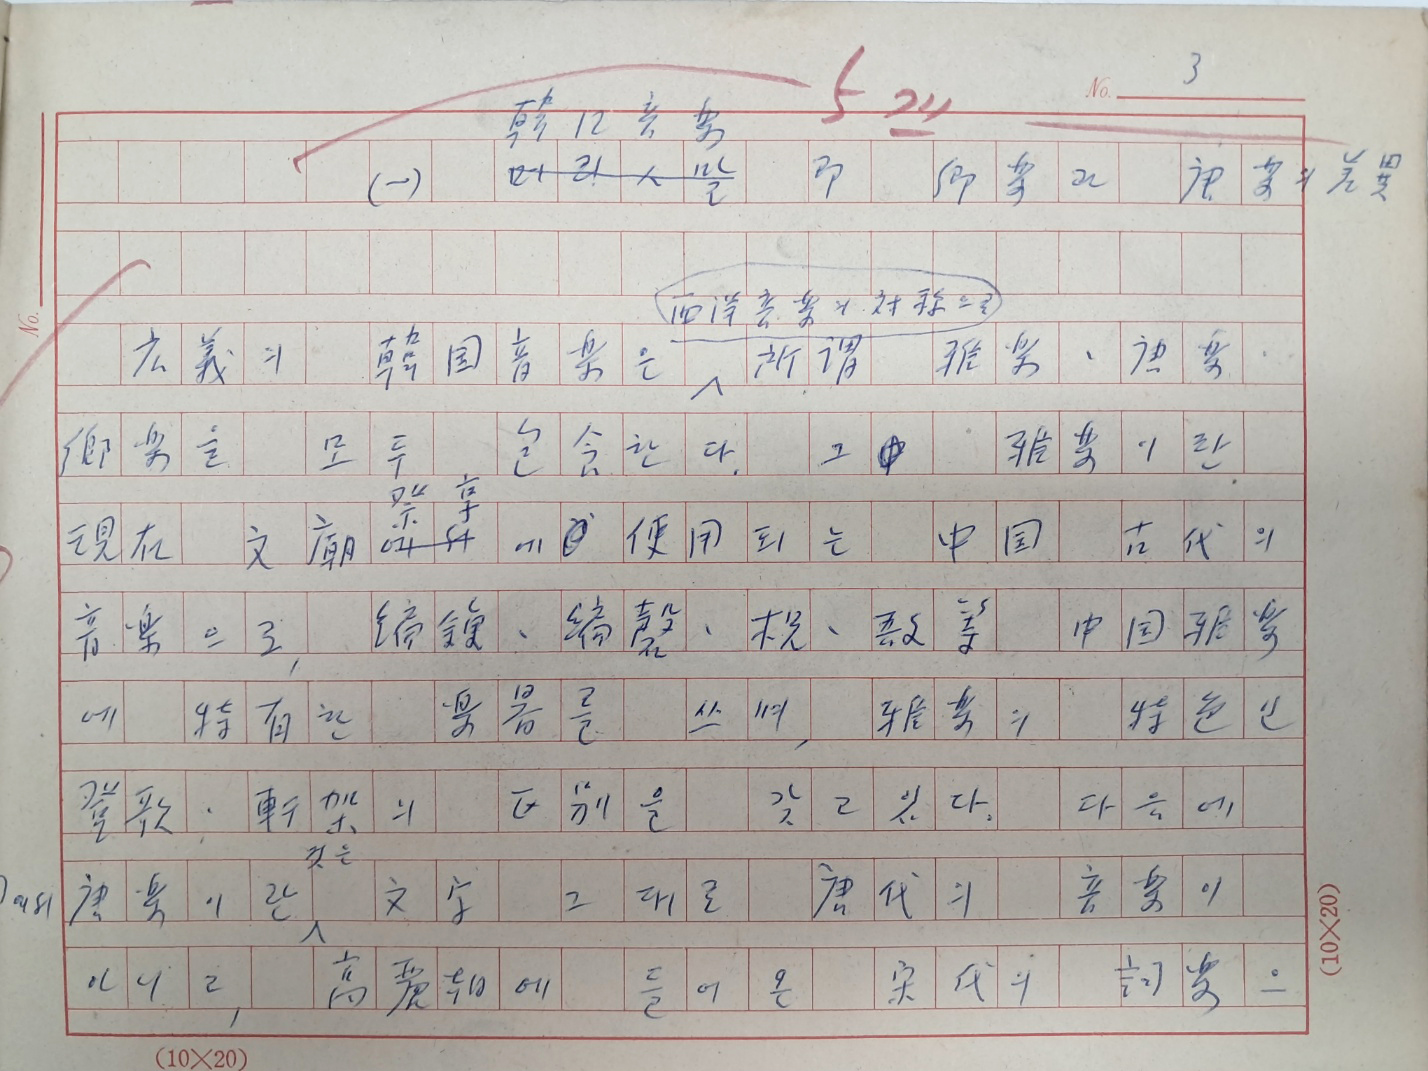 No. 3
5 二二
韓国音樂
(一) 머리스말 即 鄕樂과 唐樂의 差異
西洋音樂의 対称으로
広義의 韓国音楽은 所謂 雅樂、唐樂·
鄕樂을 모두 包含한다. 그中 雅樂이란
祭享
現在 文廟 에 使用되는 中国 古代의
音楽으로, 編鐘、編磬、柷、敔等 中国雅樂
에 特有한 樂器를 쓰며, 雅樂의 特色인
登歌·軒架의 区別을 갖고 있다. 다음에
것은
唐樂이란 文字 그대로 唐代의 音樂이
아니고, 高麗朝에 들어온 宋代의 詞樂으
No.
(10×20)
(10×20)